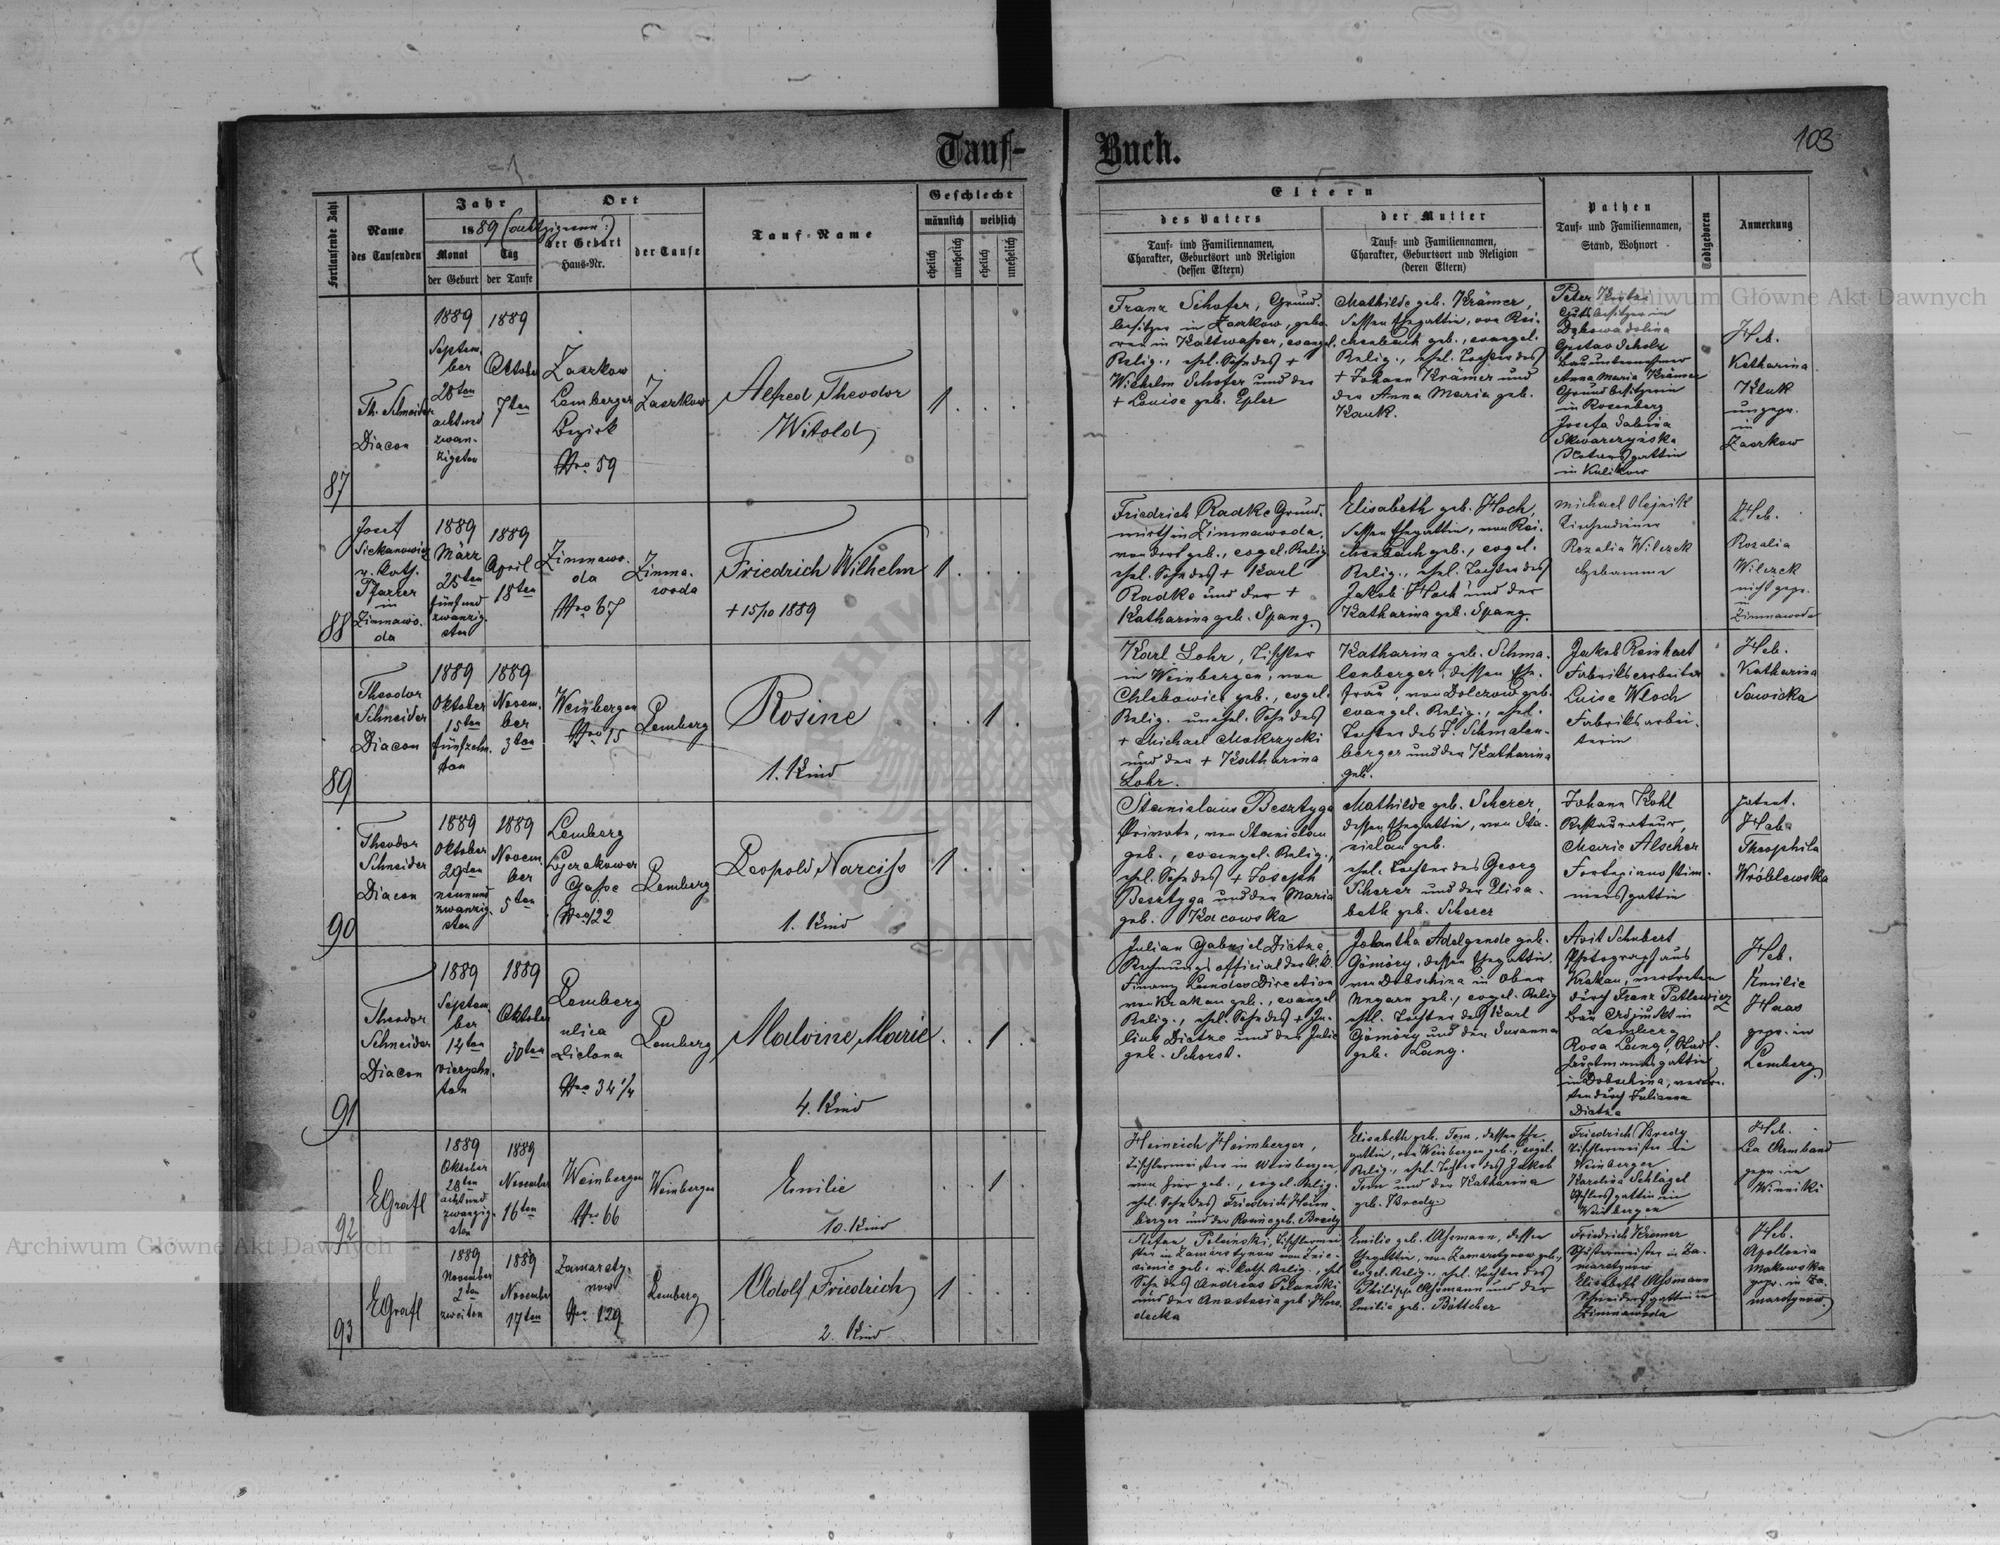 Tauf-
Buch.
103
Fortlaufende Zahl
Name
des Taufenden
Jahr
1889
Monat
der Geburt
Tag
der Taufe
Ort
der Geburt
Haus-Nr.
der Taufe
Tauf-Name
Geschlecht
männlich
weiblich
ehelich
unehelich
ehelich
unehelich
Eltern
des Vaters
Tauf- und Familiennamen,
Charakter, Geburtsort und Religion
(dessen Eltern)
der Mutter
Tauf- und Familiennamen,
Charakter, Geburtsort und Religion
(deren Eltern)
Pathen
Tauf- und Familiennamen,
Stand, Wohnort
Todtgeboren
Anmerkung
87
Th. Schneider
Diacon
1889
Septem-
ber
28ten
achtund
zwan-
zigsten
1889
Oktober
7ten
Zaszkow
Lemberger
Bezirk
Nro 59
Zaszkow
Alfred Theodor
Witold
1
Franz Schofer, Grund-
besitzer in Zaszkow, gebo-
ren in Kaltwasser, evangel.
Relig., ehel. Sohn des +
Wilhelm Schofer und der
+ Louise geb. Epler
Mathilde geb. Krämer,
dessen Ehegattin, von Rei-
chenbach geb., evangel.
Relig., ehel. Tochter des
+ Johann Krämer und
der Anna Maria geb.
Kauk.
Peter
Gutsbesitzer in
Dąbowa dolina
Gustav Scholz
Bauunternehmer
Anna Maria Krämer
Grundbesitzerin
in Rosenberg
Josefa Sabina
Skwarczyńska
Notarsgattin
in Kulikow
Heb.
Katharina
Kluk
ungepr.
in
Zaszkow
88
Josef
Siekanowicz
r. kath.
Pfarrer
in
Zimnawo-
da
1889
März
25ten
fünfund
zwanzig-
sten
1889
April
18ten
Zimnawo-
da
Nro 67
Zimna-
woda
Friedrich Wilhelm
+ 15/10 1889
1
Friedrich Radke Grund-
wirth in Zimnawoda,
von dort geb., evgel. Relig.
ehel. Sohn des + Karl
Radke und der +
Katharina geb. Spang.
Elisabeth geb. Hoch,
dessen Ehegattin, von Rei-
chenbach geb., evgel.
Relig., ehel. Tochter des
Jakob Hoch und der
Katharina geb. Spang.
Michael Olejnik
Kirchendiener
Rozalia Wilczek
Hebamme
Heb.
Rozalia
Wilczek
nicht gepr.
in
Zimnawoda
89
Theodor
Schneider
Diacon
1889
Oktober
15ten
fünfzehn-
ten
1889
Novem-
ber
3ten
Weinbergen
Nro 15
Lemberg
Rosine
1. Kind
1
Karl Lohr, Tischler
in Weinbergen, von
Chlebowice geb., evgel.
Relig. unehel. Sohn des
+ Michael Mokrzycki
und der + Katharina
Lohr.
Katharina geb. Schma-
lenberger, dessen Ehe-
frau, von Dolczow geb.
evangel. Relig., ehel.
Tochter des J. Schmalen-
berger und der Katharina
geb.
Jakob Reinhart
Fabriksarbeiter
Luise Wloch
Fabriksarbei-
terin
Heb.
Katharina
Sawicka
90
Theodor
Schneider
Diacon
1889
Oktober
29ten
neunund
zwanzig-
sten
1889
Novem-
ber
5ten
Lemberg
Łyczakower
Gasse
Nro 122
Lemberg
Leopold Narciss
1. Kind
1
Stanislaus Besztyga
Private, von Stanislau
geb., evangel. Relig.,
ehel. Sohn des + Joseph
Besztyga und der Maria
geb. Kacowska
Mathilde geb. Scherer,
dessen Ehegattin, von Sta-
nislau geb.
ehel. Tochter des Georg
Scherer und der Elisa-
beth geb. Scherer
Johann Kohl
Restaurateur,
Marie Alscher
Fortepianostim-
mersgattin
Patent.
Heb.
Theophila
Wróblewska
91
Theodor
Schneider
Diacon
1889
Septem-
ber
14ten
vierzehn-
ten
1889
Oktober
30ten
Lemberg
ulica
Zielona
Nro 34 1/4
Lemberg
Malvine Marie
4. Kind
1
Julian Gabriel Dietze,
Rechnungsofficial der k.k.
Finanz Landes Direction
von Krakau geb., evangel.
Relig., ehel. Sohn des + Ju-
lius Dietze und der Julie
geb. Schorst.
Jolantha Adelgunde geb.
Gömöry, dessen Ehegattin,
von Dobschina in Ober
Ungarn geb., evgel. Relig.
ehel. Tochter des Karl
Gömöry und der Susanna
geb. Lang.
Avit Schubert
Photograf aus
Krakau, vertreten
durch Franz Patlewicz
Bau Adjunkt in
Lemberg
Rosa Lang, Stadt-
hauptmannsgattin
in Dobschina, vertre-
ten durch Julianna
Dietze
Heb.
Emilie
Haas
gepr. in
Lemberg
92
EGrafl
1889
Oktober
28ten
achtund
zwanzig-
sten
1889
November
16ten
Weinbergen
Nro 66
Weinbergen
Emilie
10. Kind
1
Heinrich Heimberger,
Tischlermeister in Weinbergen,
von hier geb., evgel. Relig.
ehel. Sohn des Friedrich Heim-
berger und der Rosine geb. Bredy
Elisabeth geb. Tom, dessen Ehe-
gattin, von Weinbergen geb., evgel.
Relig., ehel. Tochter des Jakob
Tom und der Katharina
geb. Bredy.
Friedrich Bredy
Tischlermeister in
Weinbergen
Karolina Schlägel
in
Weinbergen
Heb.
Lea Armband
gepr. in
Winniki
93
EGrafl
1889
November
2ten
zweiten
1889
November
17ten
Zamarsty-
now
Nro 129
Lemberg
Adolf Friedrich
2. Kind
1
Stefan Pelanski, Tischlermei-
ster in Zamarstynow von Znie-
sienie geb. r. kath. Relig., ehel.
Sohn des Andreas Pelanski
und der Anastasia geb. Horo-
decka
Emilie geb. Assmann, dessen
Ehegattin, von Zamarstynow geb.,
evgel. Relig., ehel. Tochter des
Philipp Assmann und der
Emilie geb. Böttcher
Friedrich Kramer
Schustermeister in Za-
marstynow
Elisabeth Assmann
Schneidersgattin in
Zimnawoda
Heb.
Apollonia
Makowska
gepr. in Za-
marstynow.
Archiwum Główne Akt Dawnych
Archiwum Główne Akt Dawnych